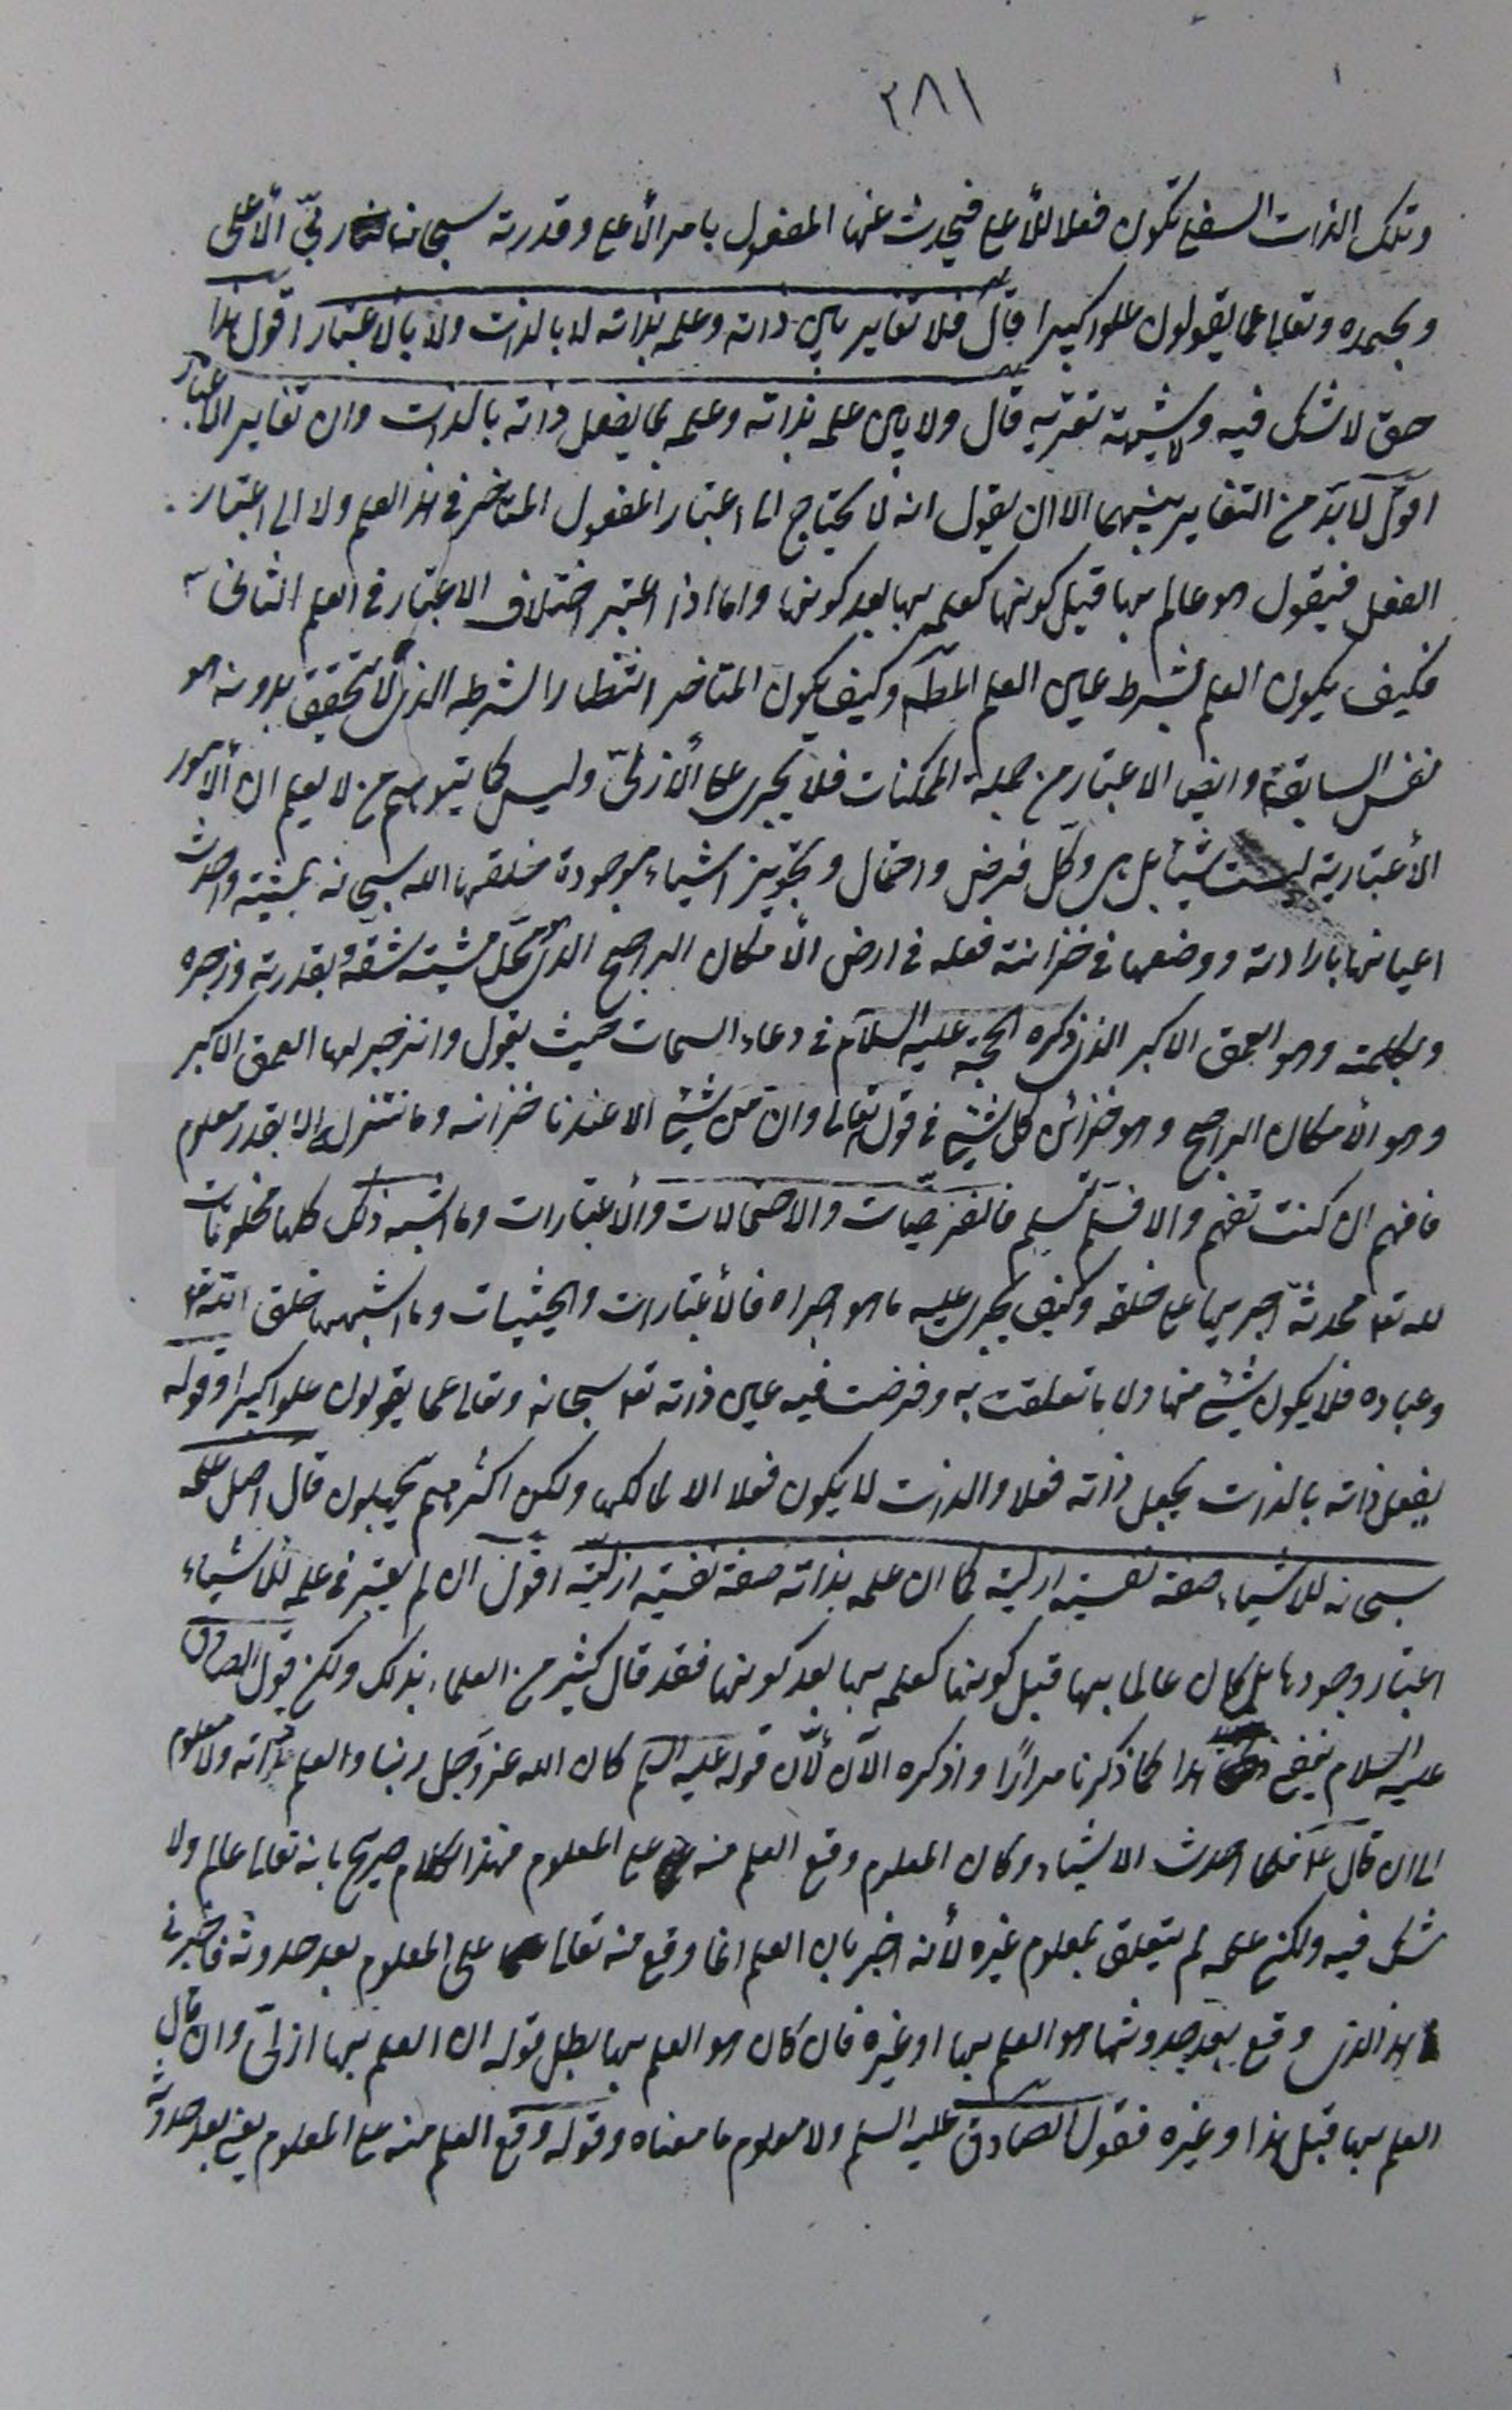 ٣٨١
وتلك الذات السفلى تكون فعلا للأعلى فيحدث عنها المفعول بامر الأعلى وقدرته سبحان ربّي الأعلى
وبحمده وتعالى عما يقولون علوا كبيرا قال فلا تغاير بين ذاته وعلمه بذاته لا بالذات ولا بالاعتبار اقول هذا
حق لا شك فيه ولا شبهة تعتريه قال ولا بين علمه بذاته وعلمه بما يفعل ذاته بالذات وان تغاير الاعتبار
اقول لا بدّ من التغاير بينهما الا ان يقول انه لا يحتاج الى اعتبار المفعول المتاخر في هذا العلم ولا الى اعتبار
الفعل فيقول هو عالم بها قبل كونها كعلمه بها بعد كونها واما اذا اعتبر اختلاف الاعتبار في العلم الثاني
فكيف يكون العلم بشرط عين العلم المطلق وكيف يكون المتاخر انتظارا لشرطه الذي لا يتحقق بدونه هو
نفس السابق وايض الاعتبار من جملة الممكنات فلا يجري على الأزليّ وليس كما يتوهم من لا يعلم ان الأمور
الأعتبارية ليست شيئا بل هي وكلّ فرض واحتمال وتجويز اشياء موجودة خلقها الله سبحانه بمشيته واحدث
اعيانها بارادته ووضعها في خزانة فعله في ارض الأمكان الراجح الذي هو محلّ مشيته شقّه بقدرته وزجره
وبكلمته وهو العمق الاكبر الذي ذكره الحجة عليه السلام في دعاء السمات حيث يقول وانزجر لها العمق الاكبر
وهو الأمكان الراجح وهو خزائن كل شيئ في قوله تعالى وان من شيئ الا عندنا خزائنه وما ننزله الا بقدر معلوم
فافهم ان كنت تفهم والا فسلّم تسلم فالفرضيّات والاحتمالات والأعتبارات وما اشبه ذلك كلها مخلوقات
لله تعه محدثة اجريها على خلقه وكيف يجري عليه ما هو اجراه فالأعتبارات والحيثيات وما اشبهها خلق الله تعه
وعباده فلا يكون شيئ منها ولا ما تعلقت به وفرضت فيه عين ذاته تعه سبحانه وتعالى عما يقولون علوا كبيرا وقوله
يفعل ذاته بالذات يجعل ذاته فعلا والذات لا يكون فعلا الا لمالكها ولكن اكثرهم يجهلون قال اصل علمه
سبحانه للاشياء صفة نفسية ازلية كما ان علمه بذاته صفة نفسية ازليّة اقول ان لم يعتبر في علمه للاشياء
اعتبار وجودها بل كان عالما بها قبل كونها كعلمه بها بعد كونها فقد قال كثير من العلماء بذلك ولكن قول الصادق
عليه السلام ينفي هذا كما ذكرنا مرارًا واذكره الآن لأنّ قوله عليه السلم كان الله عز وجل ربنا والعلم ذاته ولا معلوم
الى ان قال ع فلما احدث الاشياء وكان المعلوم وقع العلم منه على المعلوم فهذا الكلام صريح بانه تعالى عالم ولا
شك فيه ولكن علمه لم يتعلق بمعلوم غيره لأنه اخبر بان العلم انما وقع منه تعالى على المعلوم بعد حدوثه فاخبرني
هذا الذي وقع بعد حدوثها هو العلم بها او غيره فان كان هو العلم بها بطل قوله ان العلم بها ازليّ وان قال
العلم بها قبل هذا وغيره فقول الصادق عليه السلم ولا معلوم ما معناه وقوله وقع العلم منه على المعلوم يعني بعد حدوثه